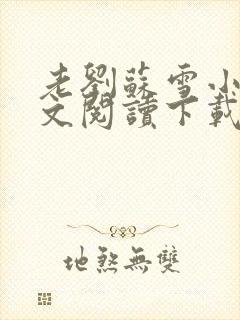 老劉蘇雪小
文閱讀下載
地煞無雙